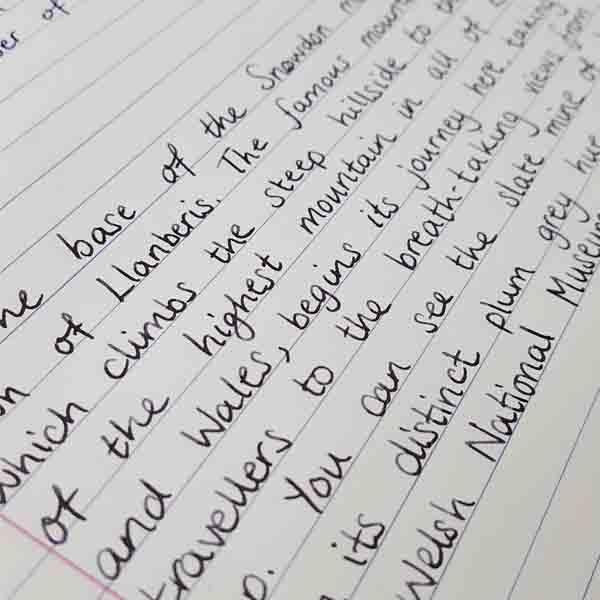 of
base of the Snowdon
of Llanberis. The famous mount
which climbs the steep hillside to
of the highest mountain in all of
and Wales, begins its journey here, taking
travellers to the breath-taking views from
p. You can see the slate mine of
its distinct plum grey hue
Welsh National Museum